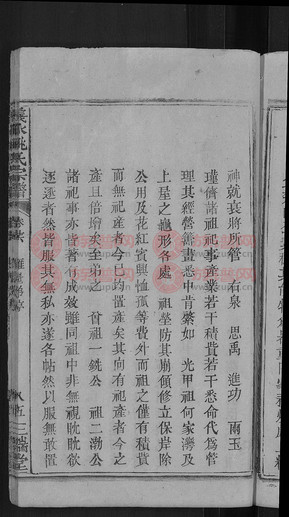 神就衰將所管 右泉 思禹 進功 雨玉
瑾儕諸祖祀事產業若干積貲若干悉命代為管
理其經營善畫悉中肯綮如 光甲祖何家灣及
上星之龜形各處 祖塋防其崩傾修立保岸除
公用及花紅賓興恤孤等費外而祖之僅有積貲
而無祀產者今已均置產矣其向有祀產者今之
產且倍增矣至弟之 首祖一銑公 祖二渤公
諸祀事亦皆著有成效雖同祖中非無視眈眈欲
逐逐者然皆服其無私亦遂各帖然以服無敢置
姚氏宗譜
三瑞堂